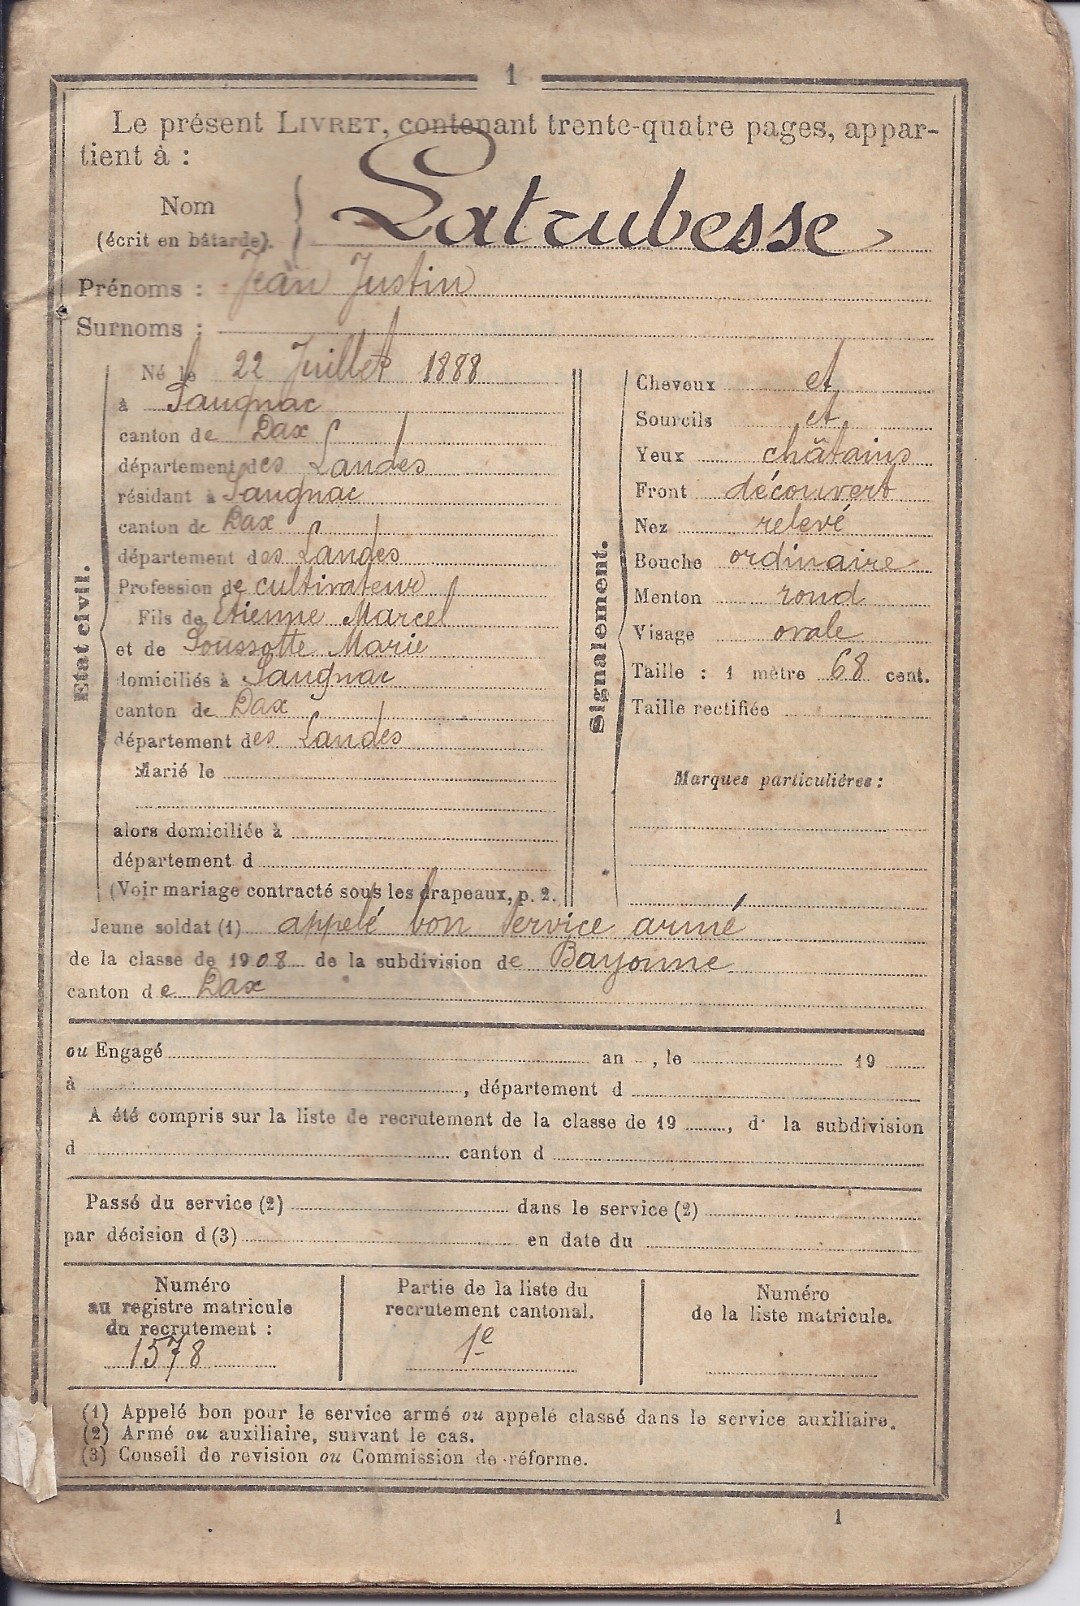 1
Le présent LIVRET, contenant trente-quatre pages, appar-
tient à :
Nom
(écrit en bâtarde). Latrubesse
Prénoms : Jean Justin
Surnoms :
État civil.
Né le 22 Juillet 1888
à Saugnac
canton de Dax
département des Landes
résidant à Saugnac
canton de Dax
département des Landes
Profession de cultivateur
Fils de Etienne Marcel
et de Loussotte Marie
domiciliés à Saugnac
canton de Dax
département des Landes
Marié le
alors domiciliée à
département d
(Voir mariage contracté sous les drapeaux, p. 2.
Signalement.
Cheveux et
Sourcils et
Yeux châtains
Front découvert
Nez relevé
Bouche ordinaire
Menton rond
Visage ovale
Taille : 1 mètre 68 cent.
Taille rectifiée
Marques particulières :
Jeune soldat (1) appelé bon service armé
de la classe de 1908 de la subdivision de Bayonne
canton de Dax
ou Engagé an , le 19
à , département d
A été compris sur la liste de recrutement de la classe de 19 , d la subdivision
d canton d
Passé du service (2) dans le service (2)
par décision d (3) en date du
Numéro
au registre matricule
du recrutement :
1578
Partie de la liste du
recrutement cantonal.
1e
Numéro
de la liste matricule.
(1) Appelé bon pour le service armé ou appelé classé dans le service auxiliaire.
(2) Armé ou auxiliaire, suivant le cas.
(3) Conseil de revision ou Commission de réforme.
1